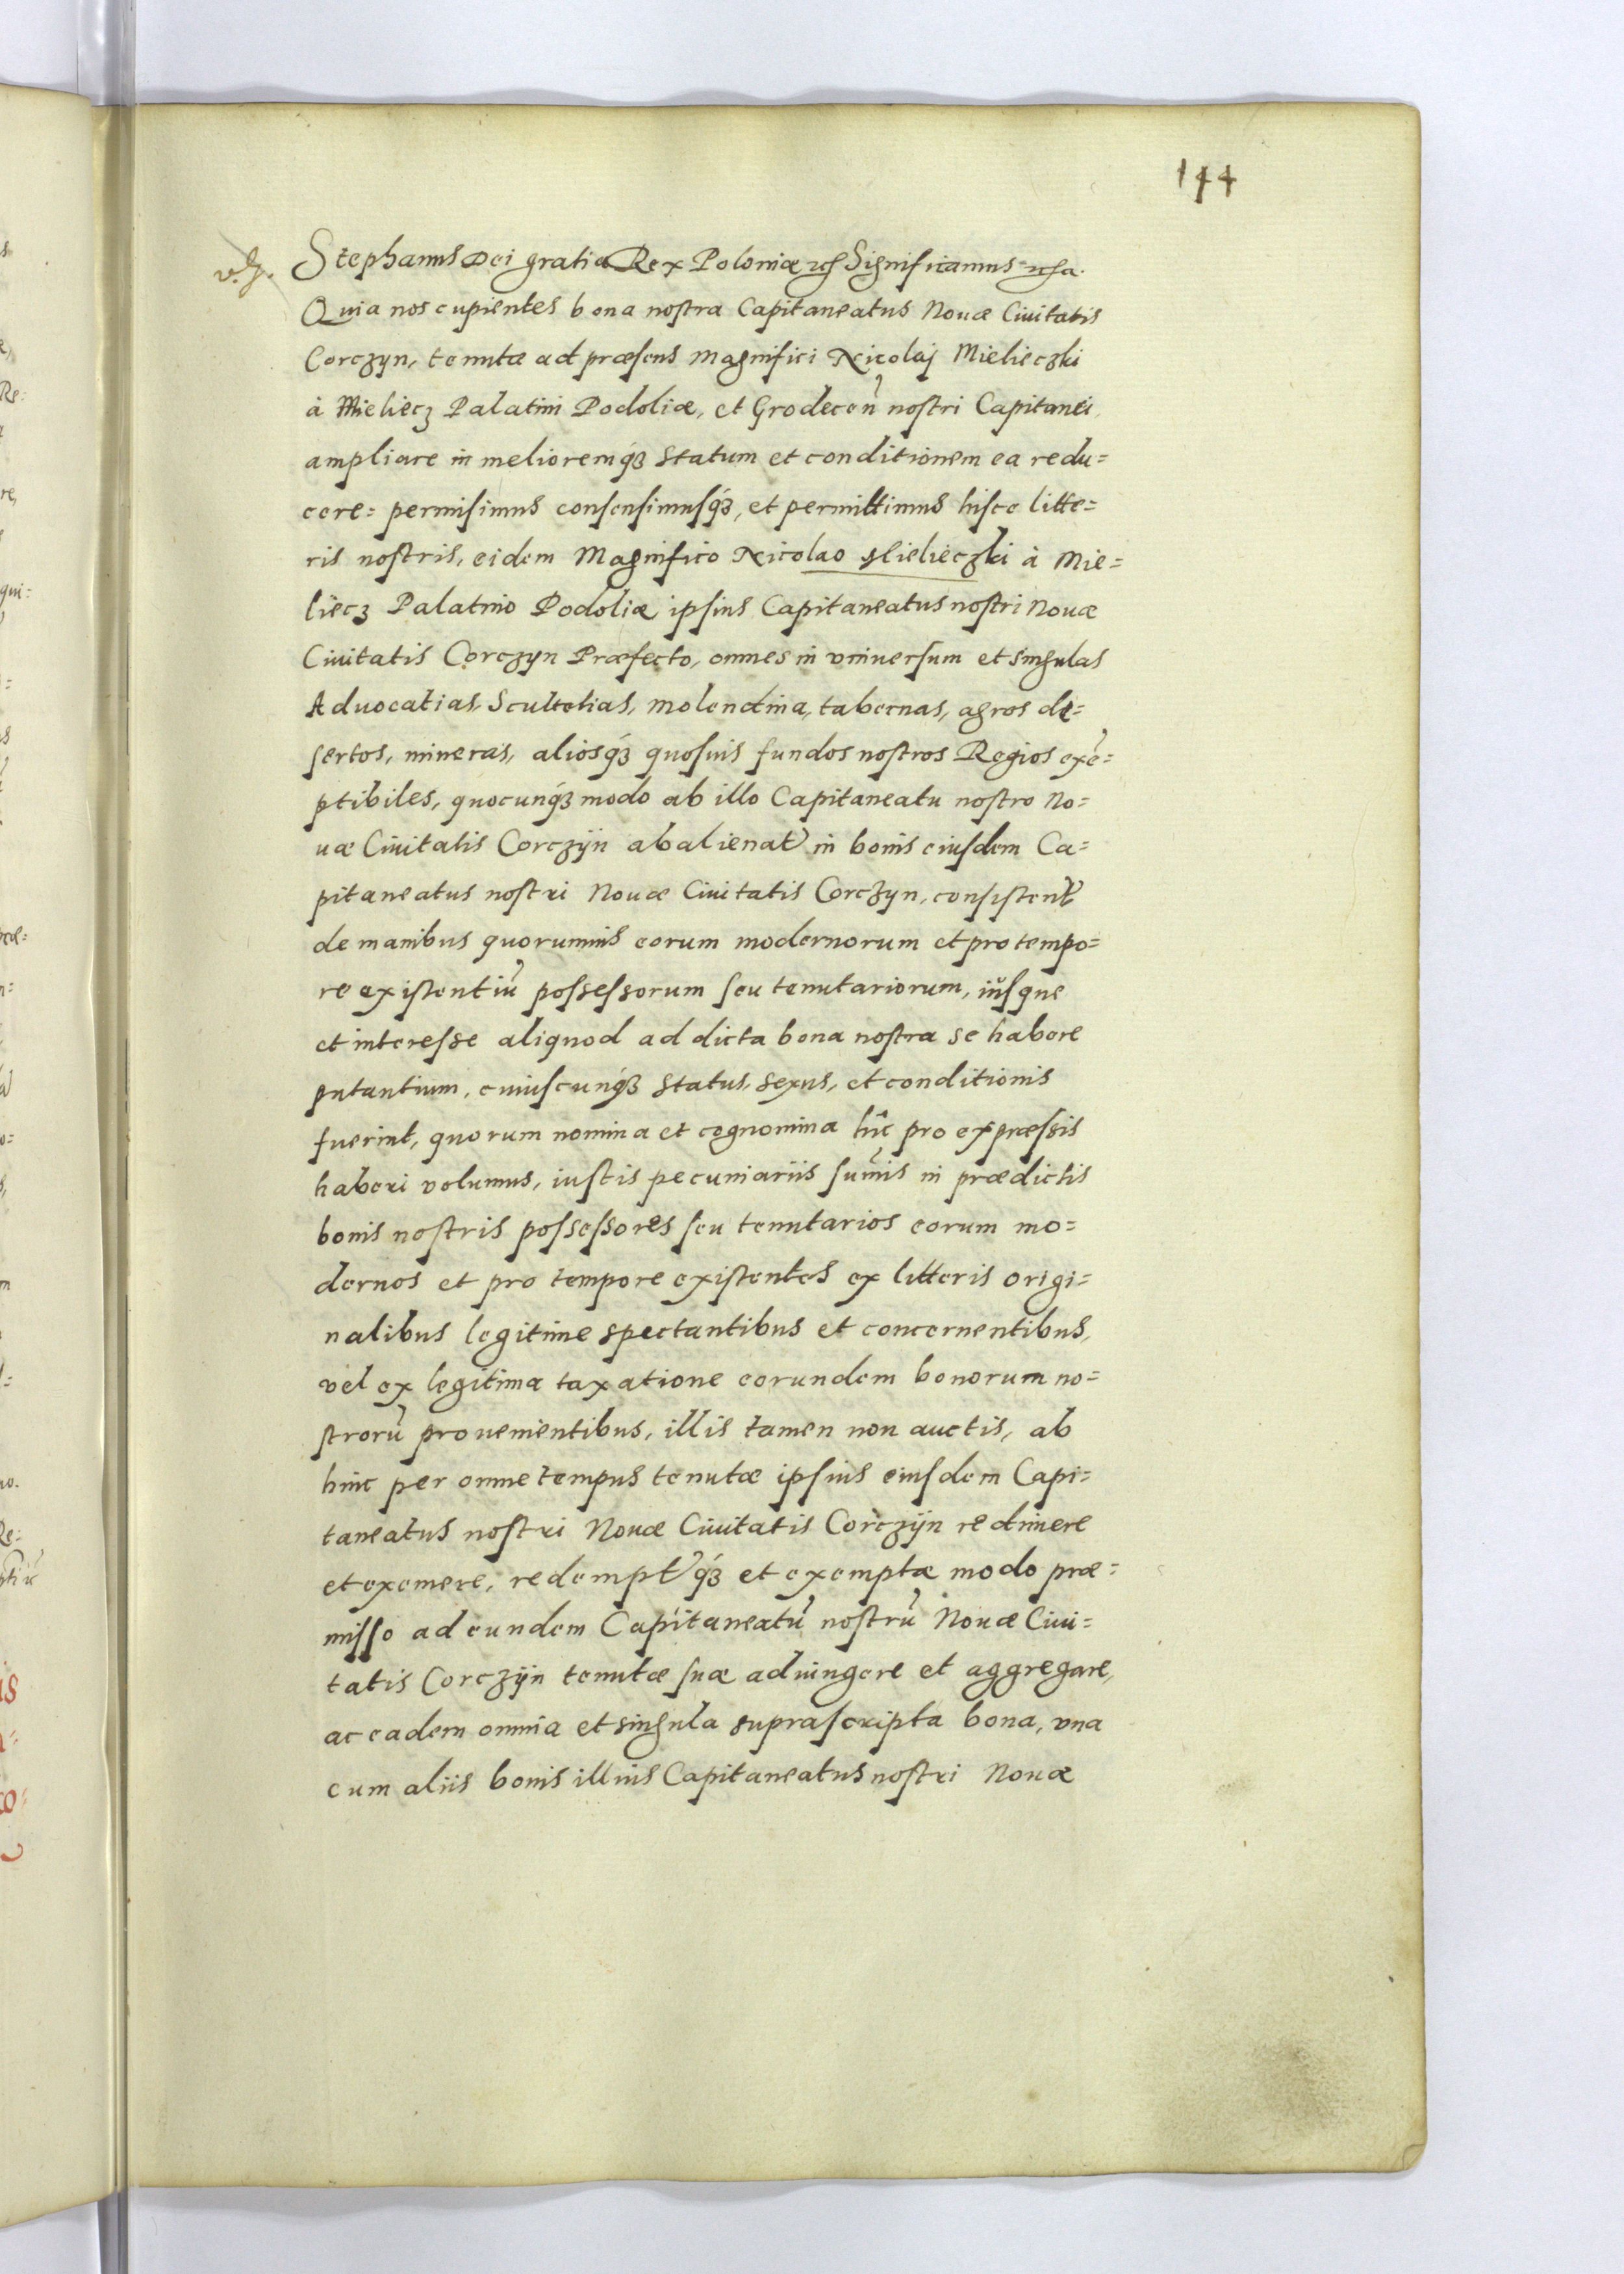 144
Stephanus Dei gratia Rex Poloniæ etc Significamus etca.
Quia nos cupientes bona nostra Capitaneatus Nouæ Ciuitatis
Corczyn, tenutæ ad præsens Magnifici Nicolaj Mielieczki
à Mieliecz Palatini Podoliæ, et Grodecen̄ nostri Capitanei,
ampliare in melioremq́ʒ statum et conditionem ea redu=
cere= permisimus consensimusq́ʒ, et permittimus hisce litte=
ris nostris, eidem Magnifico Nicolao Mielieczki à Mie=
liecz Palatino Podoliæ ipsius Capitaneatus nostri Nouæ
Ciuitatis Corczyn Præfecto, omnes in vniuersum et singulas
Aduocatias, Scultetias, molendina, tabernas, agros de=
sertos, mineras, aliosq́ʒ quosuis fundos nostros Regios exē=
ptibiles, quocunq́ʒ modo ab illo Capitaneatu nostro No=
uæ Ciuitatis Corczÿn abalienat̄ in bonis eiusdem Ca=
pitaneatus nostri Nouæ Ciuitatis Corczyn, consistent̄
de manibus quorumuis eorum modernorum et pro tempo=
re existentiū possessorum seu tenutariorum, iusque
et interesse aliquod ad dicta bona nostra se habere
putantium, cuiuscunq́ʒ status, sexus, et conditionis
fuerint, quorum nomina et cognomina hîc pro expræssis
haberi volumus, iustis pecuniariis sum̄is in prædictis
bonis nostris possessores seu tenutarios eorum mo=
dernos et pro tempore existentes ex litteris origi=
nalibus legitime spectantibus et concernentibus,
vel ex legitima taxatione eorundem bonorum no=
strorū prouenientibus, illis tamen non auctis, ab
hinc per omne tempus tenutæ ipsius eiusdem Capi=
taneatus nostri Nouæ Ciuitatis Corczÿn redimere
et eximere, redempt̄q́ʒ et exemptæ modo præ=
misso ad eundem Capitaneatū nostrū Nouæ Ciui=
tatis Corczÿn tenutæ suæ adiungere et aggregare,
ac eadem omnia et singula suprascripta bona, vna
cum aliis bonis illius Capitaneatus nostri Nouæ